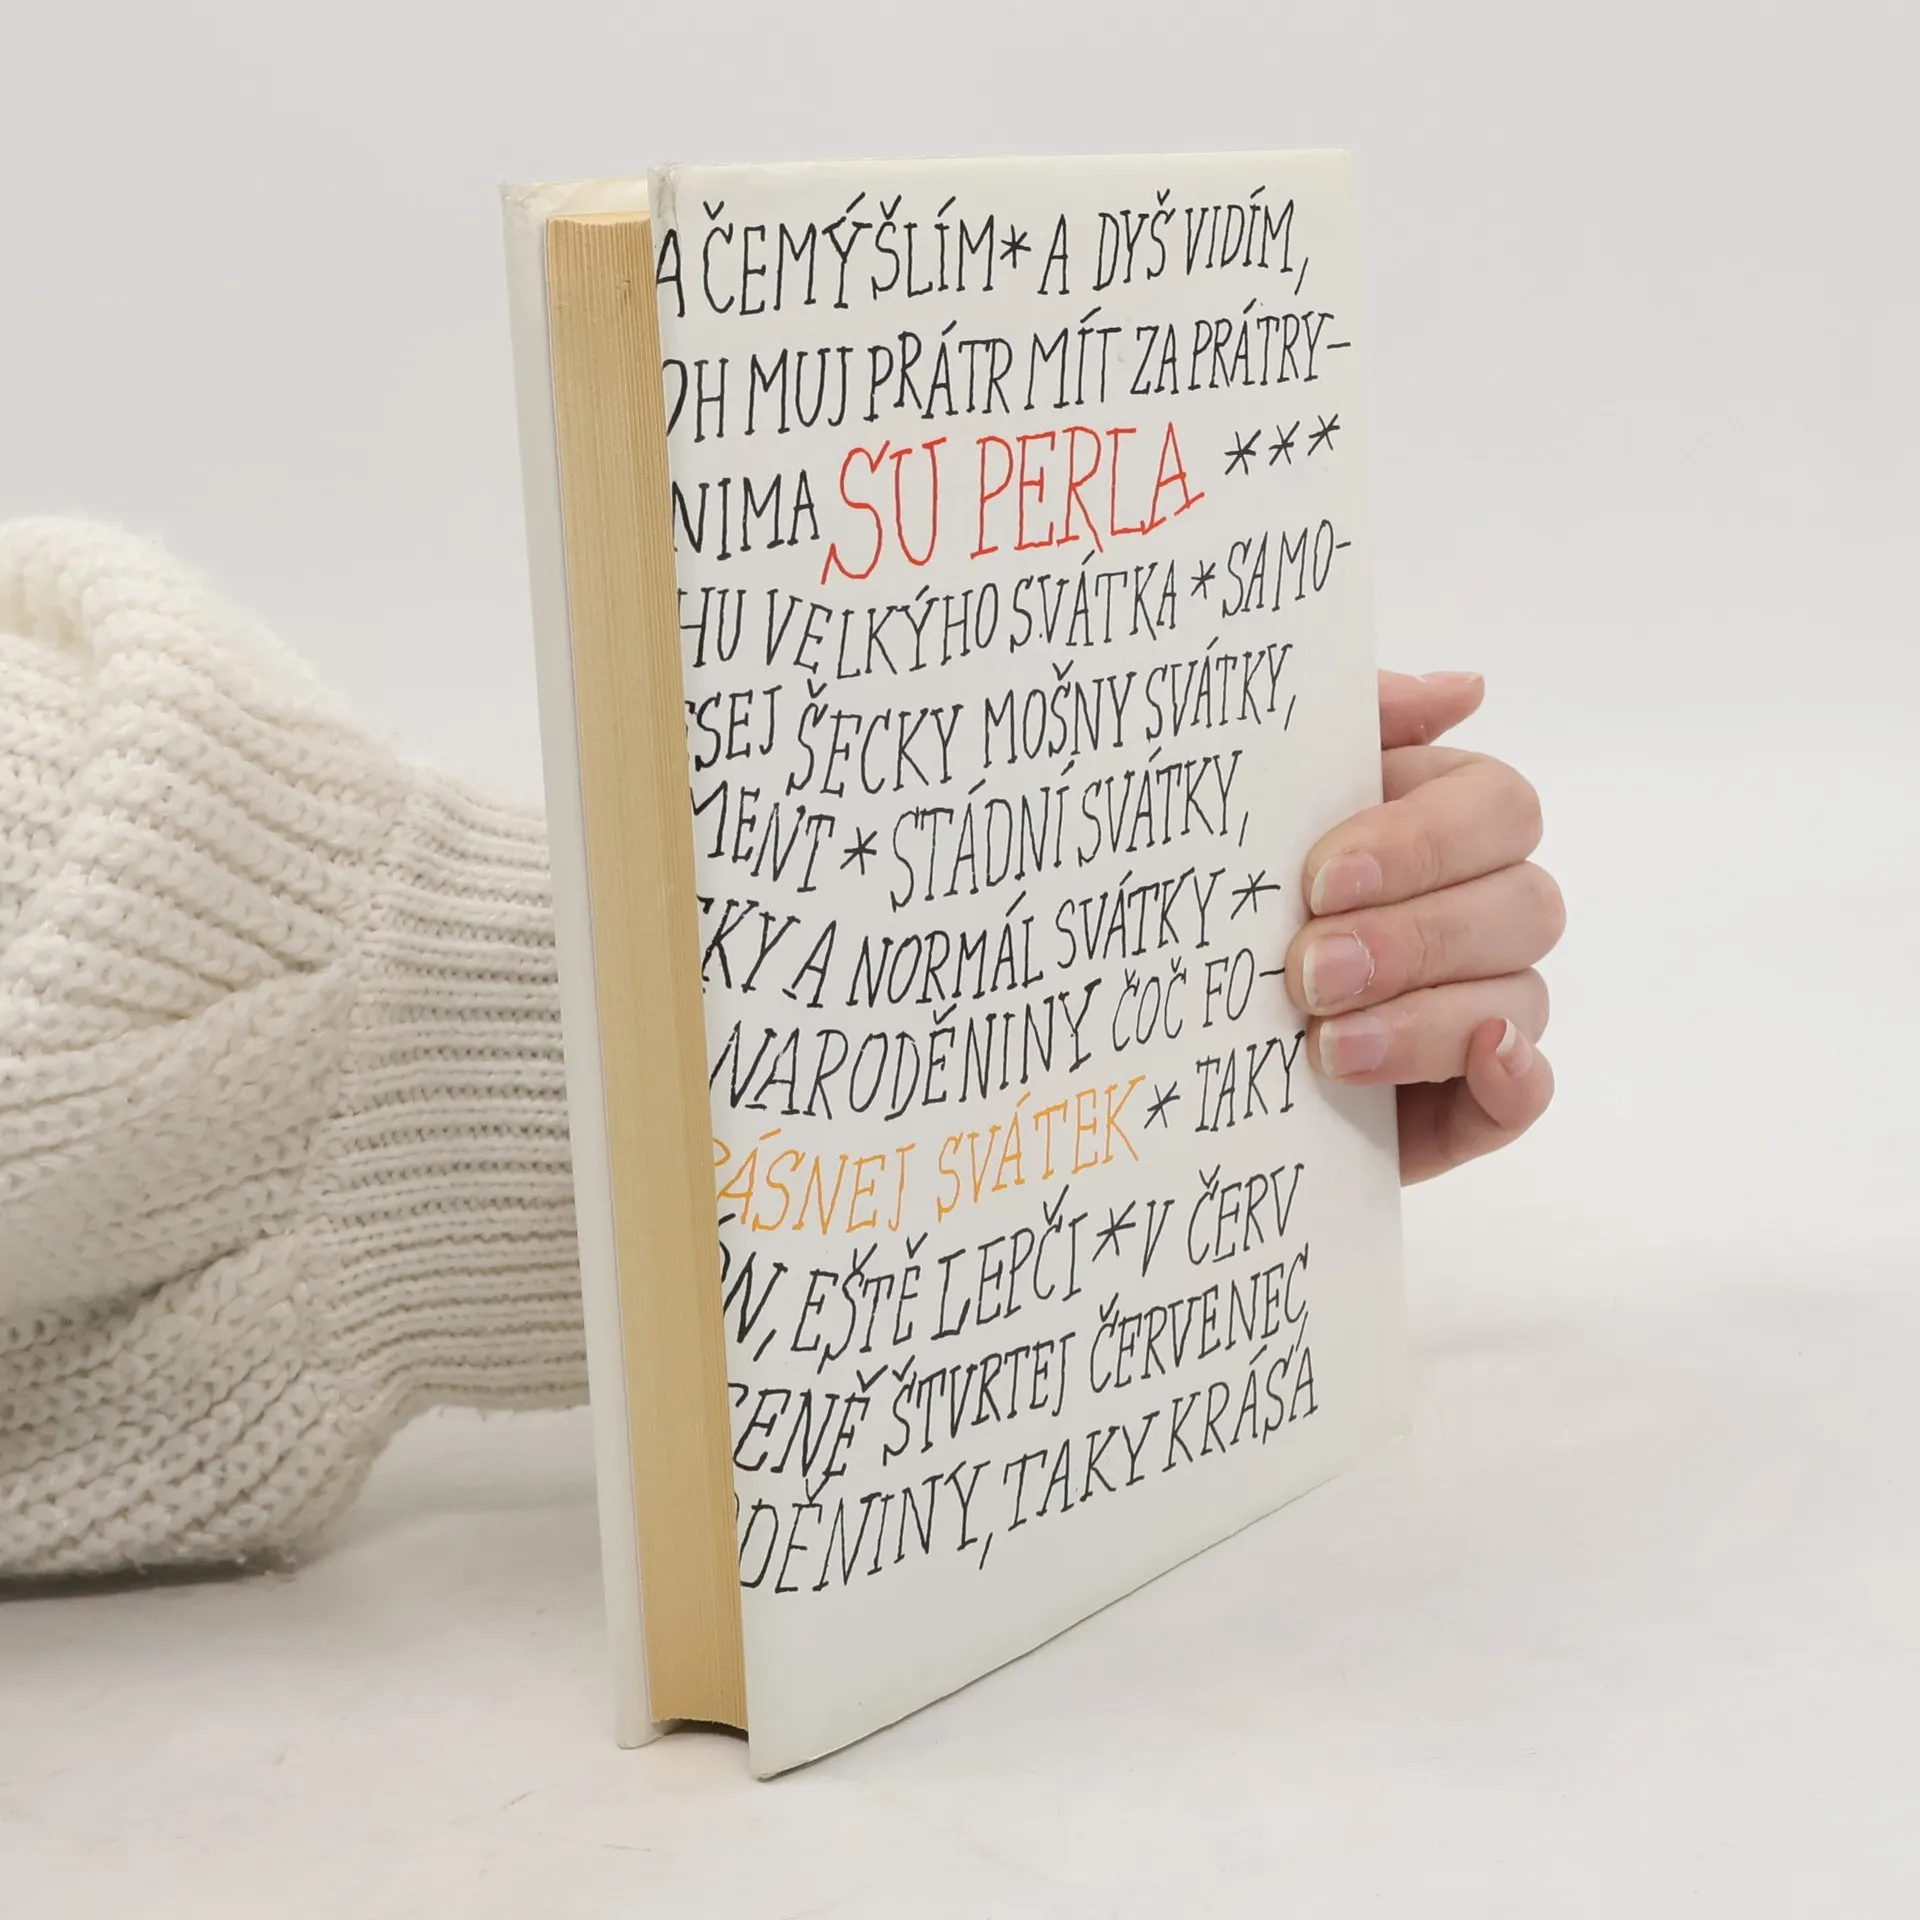 A ČEMÝŠLÍM * A DYŠ VIDÍM,
MUJ PRÁTR MÍT ZA PRÁTRY-
NIMA SU PERLA ***
VELKÝHO SVÁTKA * SAMO-
ŠECKY MOŠNY SVÁTKY,
MENT * STÁDNÍ SVÁTKY,
KY A NORMÁL SVÁTKY *
NARODĚNINY ČOČ FO-
ÁSNEJ SVÁTEK * TAKY
N, EŠTĚ LEPČI * V ČERV
ENĚ ŠTVRTEJ ČERVENEC,
DĚNINY, TAKY KRÁSA